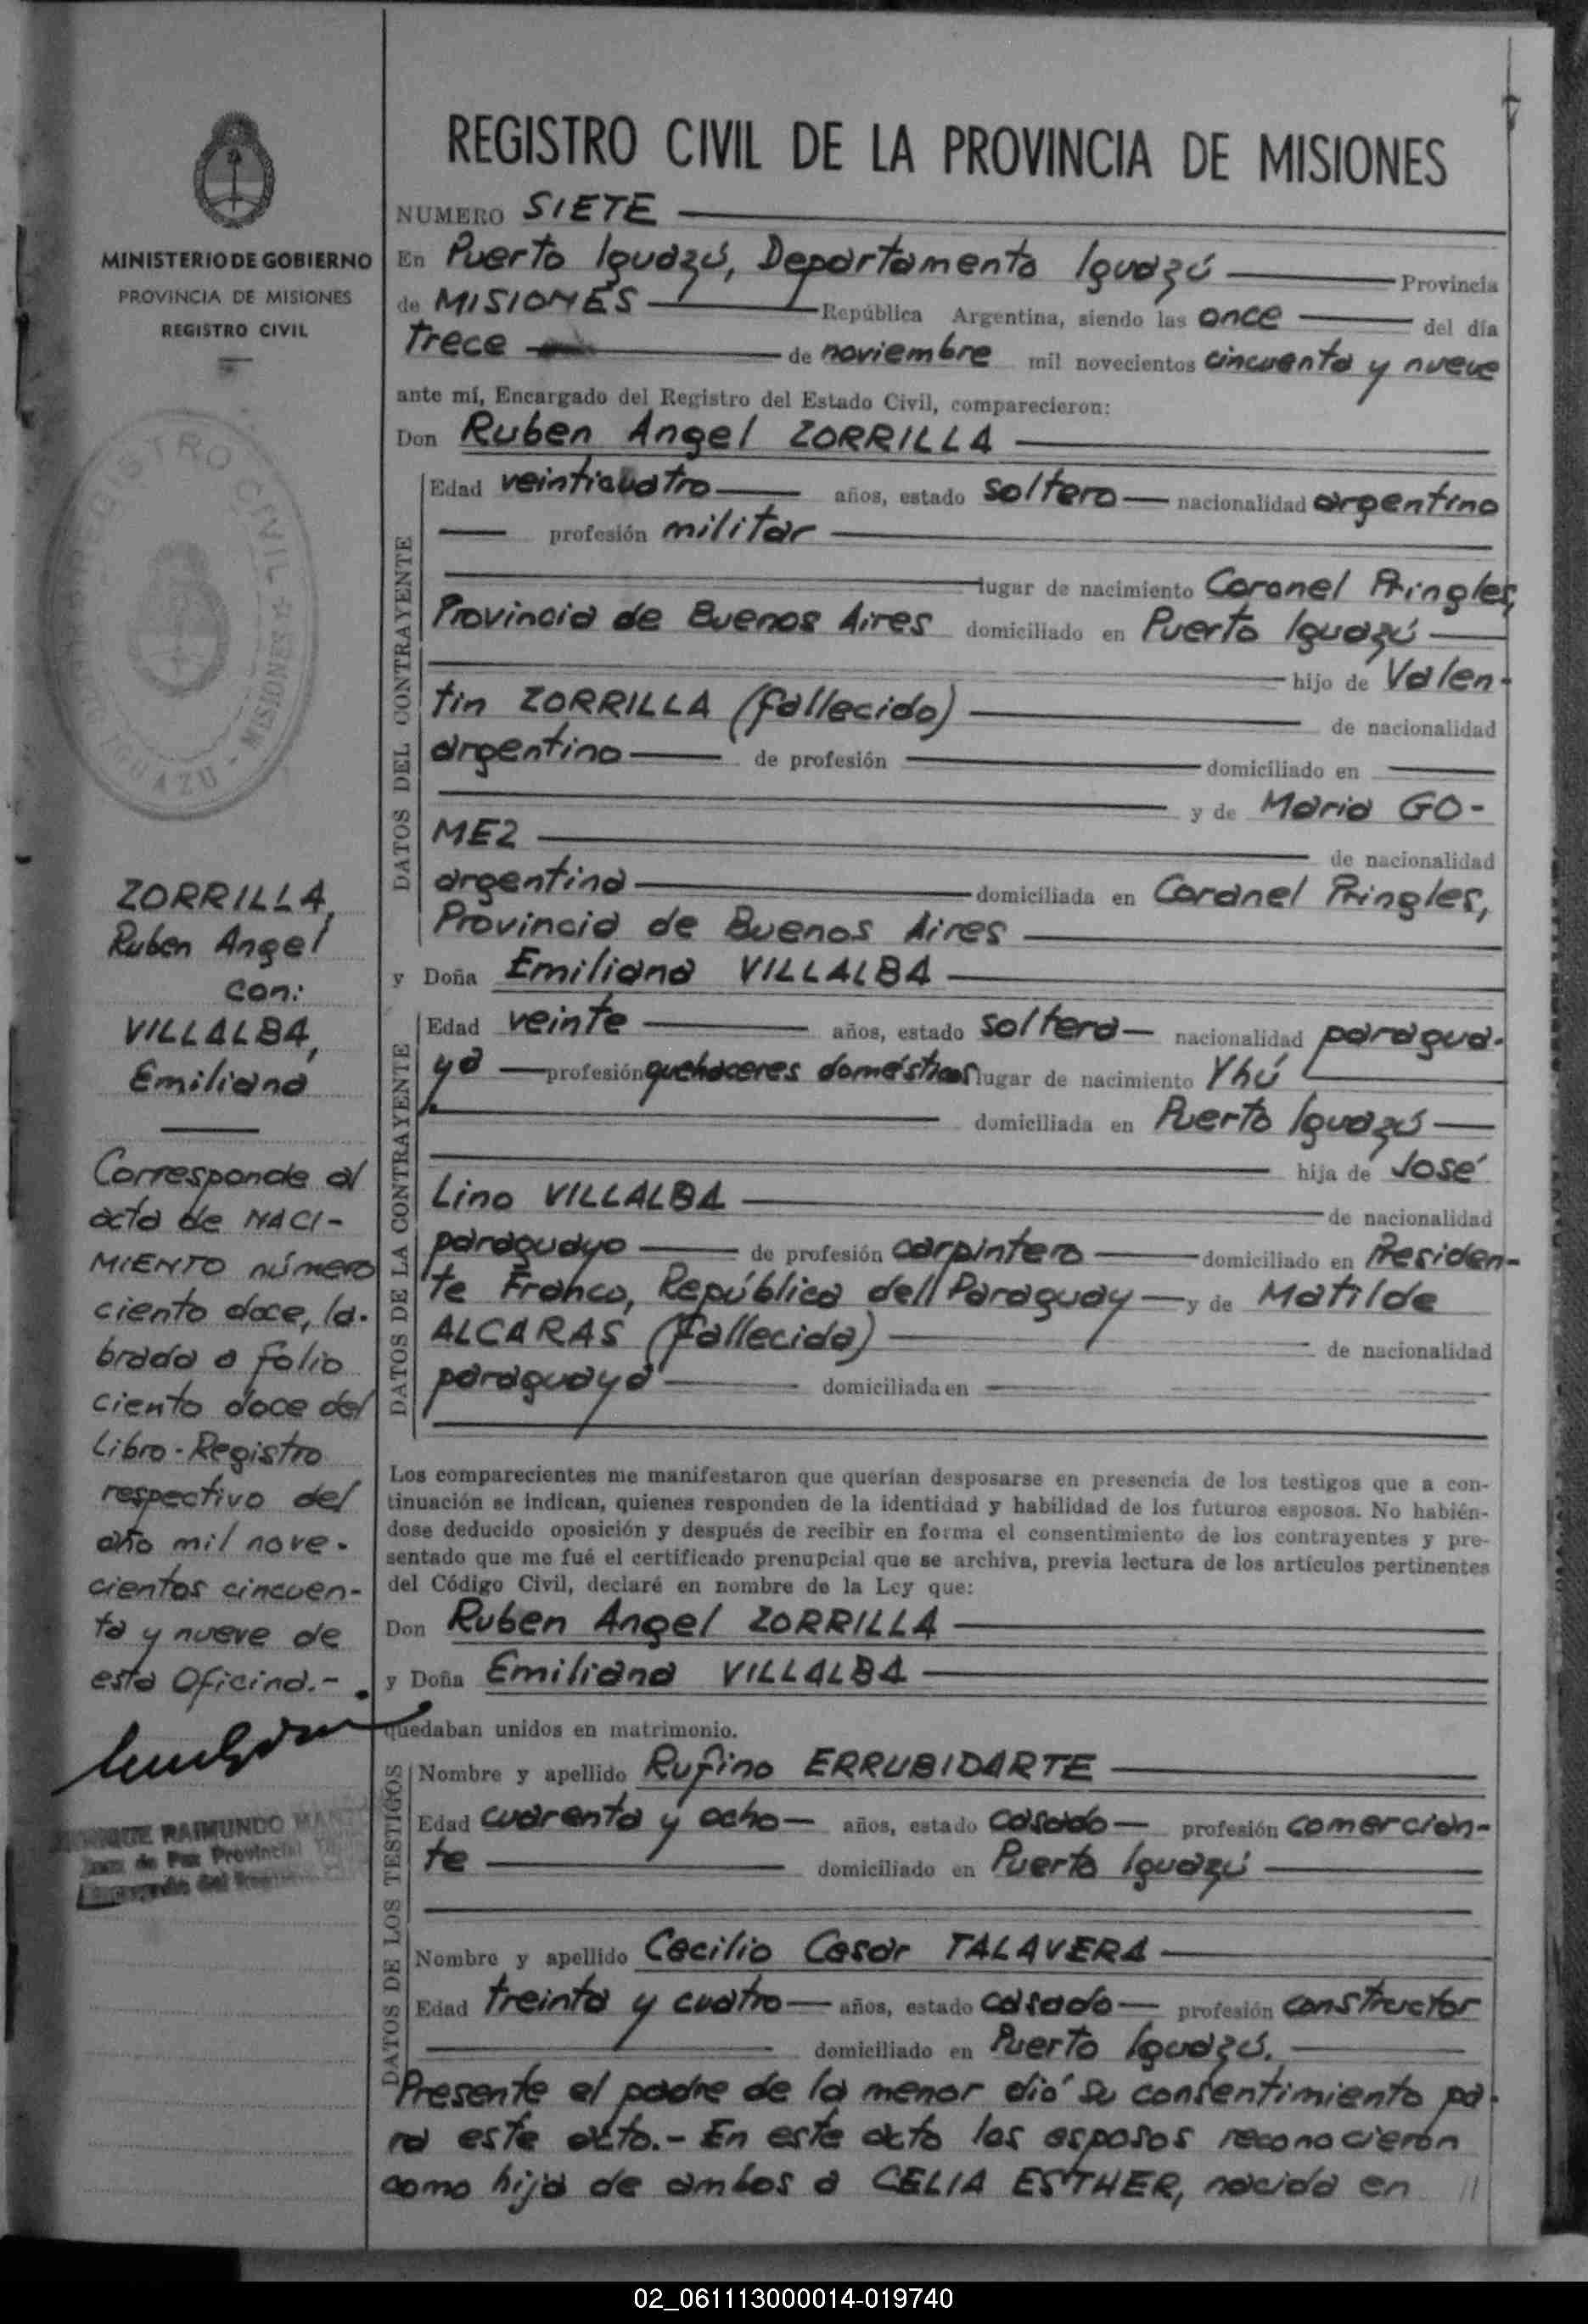 REGISTRO CIVIL DE LA PROVINCIA DE MISIONES
MINISTERIO DE GOBIERNO
PROVINCIA DE MISIONES
REGISTRO CIVIL
REGISTRO CIVIL
IGUAZU - MISIONES
ZORRILLA,
Ruben Angel
con:
VILLALBA,
Emiliana
Corresponde al
acta de NACI-
MIENTO número
ciento doce, la-
brada a folio
ciento doce del
Libro-Registro
respectivo del
año mil nove-
cientos cincuen-
ta y nueve de
esta Oficina.-
RAIMUNDO
Juez de Paz Provincial
NUMERO SIETE
En Puerto Iguazú, Departamento Iguazú Provincia
de MISIONES República Argentina, siendo las once del día
trece de noviembre mil novecientos cincuenta y nueve
ante mí, Encargado del Registro del Estado Civil, comparecieron:
Don Ruben Angel ZORRILLA
DATOS DEL CONTRAYENTE
Edad veinticuatro años, estado soltero nacionalidad argentino
profesión militar
lugar de nacimiento Coronel Pringles,
Provincia de Buenos Aires domiciliado en Puerto Iguazú
hijo de Valen-
tin ZORRILLA (fallecido) de nacionalidad
argentino de profesión domiciliado en
y de Maria GO-
MEZ de nacionalidad
argentina domiciliada en Coronel Pringles,
Provincia de Buenos Aires
y Doña Emiliana VILLALBA
DATOS DE LA CONTRAYENTE
Edad veinte años, estado soltera nacionalidad paragua-
ya profesión quehaceres domésticos lugar de nacimiento Yhú
domiciliada en Puerto Iguazú
hija de José
Lino VILLALBA de nacionalidad
paraguayo de profesión carpintero domiciliado en Presiden-
te Franco, República dell Paraguay y de Matilde
ALCARAS (fallecida) de nacionalidad
paraguaya domiciliada en
Los comparecientes me manifestaron que querían desposarse en presencia de los testigos que a con-
tinuación se indican, quienes responden de la identidad y habilidad de los futuros esposos. No habién-
dose deducido oposición y después de recibir en forma el consentimiento de los contrayentes y pre-
sentado que me fué el certificado prenupcial que se archiva, previa lectura de los artículos pertinentes
del Código Civil, declaré en nombre de la Ley que:
Don Ruben Angel ZORRILLA
y Doña Emiliana VILLALBA
quedaban unidos en matrimonio.
DATOS DE LOS TESTIGOS
Nombre y apellido Rufino ERRUBIDARTE
Edad cuarenta y ocho años, estado casado profesión comercian-
te domiciliado en Puerto Iguazú
Nombre y apellido Cecilio Cesar TALAVERA
Edad treinta y cuatro años, estado casado profesión constructor
domiciliado en Puerto Iguazú.
Presente el padre de la menor dió su consentimiento pa-
ra este acto.- En este acto los esposos reconocieron
como hija de ambos a CELIA ESTHER, nacida en //
02_061113000014-019740